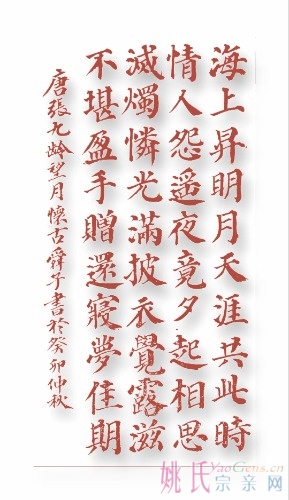 海上昇明月天涯共此時
情人怨遥夜竟夕起相思
滅燭憐光滿披衣覺露滋
不堪盈手贈還寢夢佳期
唐張九齡望月懷古舜子書於癸卯仲秋
姚氏宗亲网
YaoGens.cn